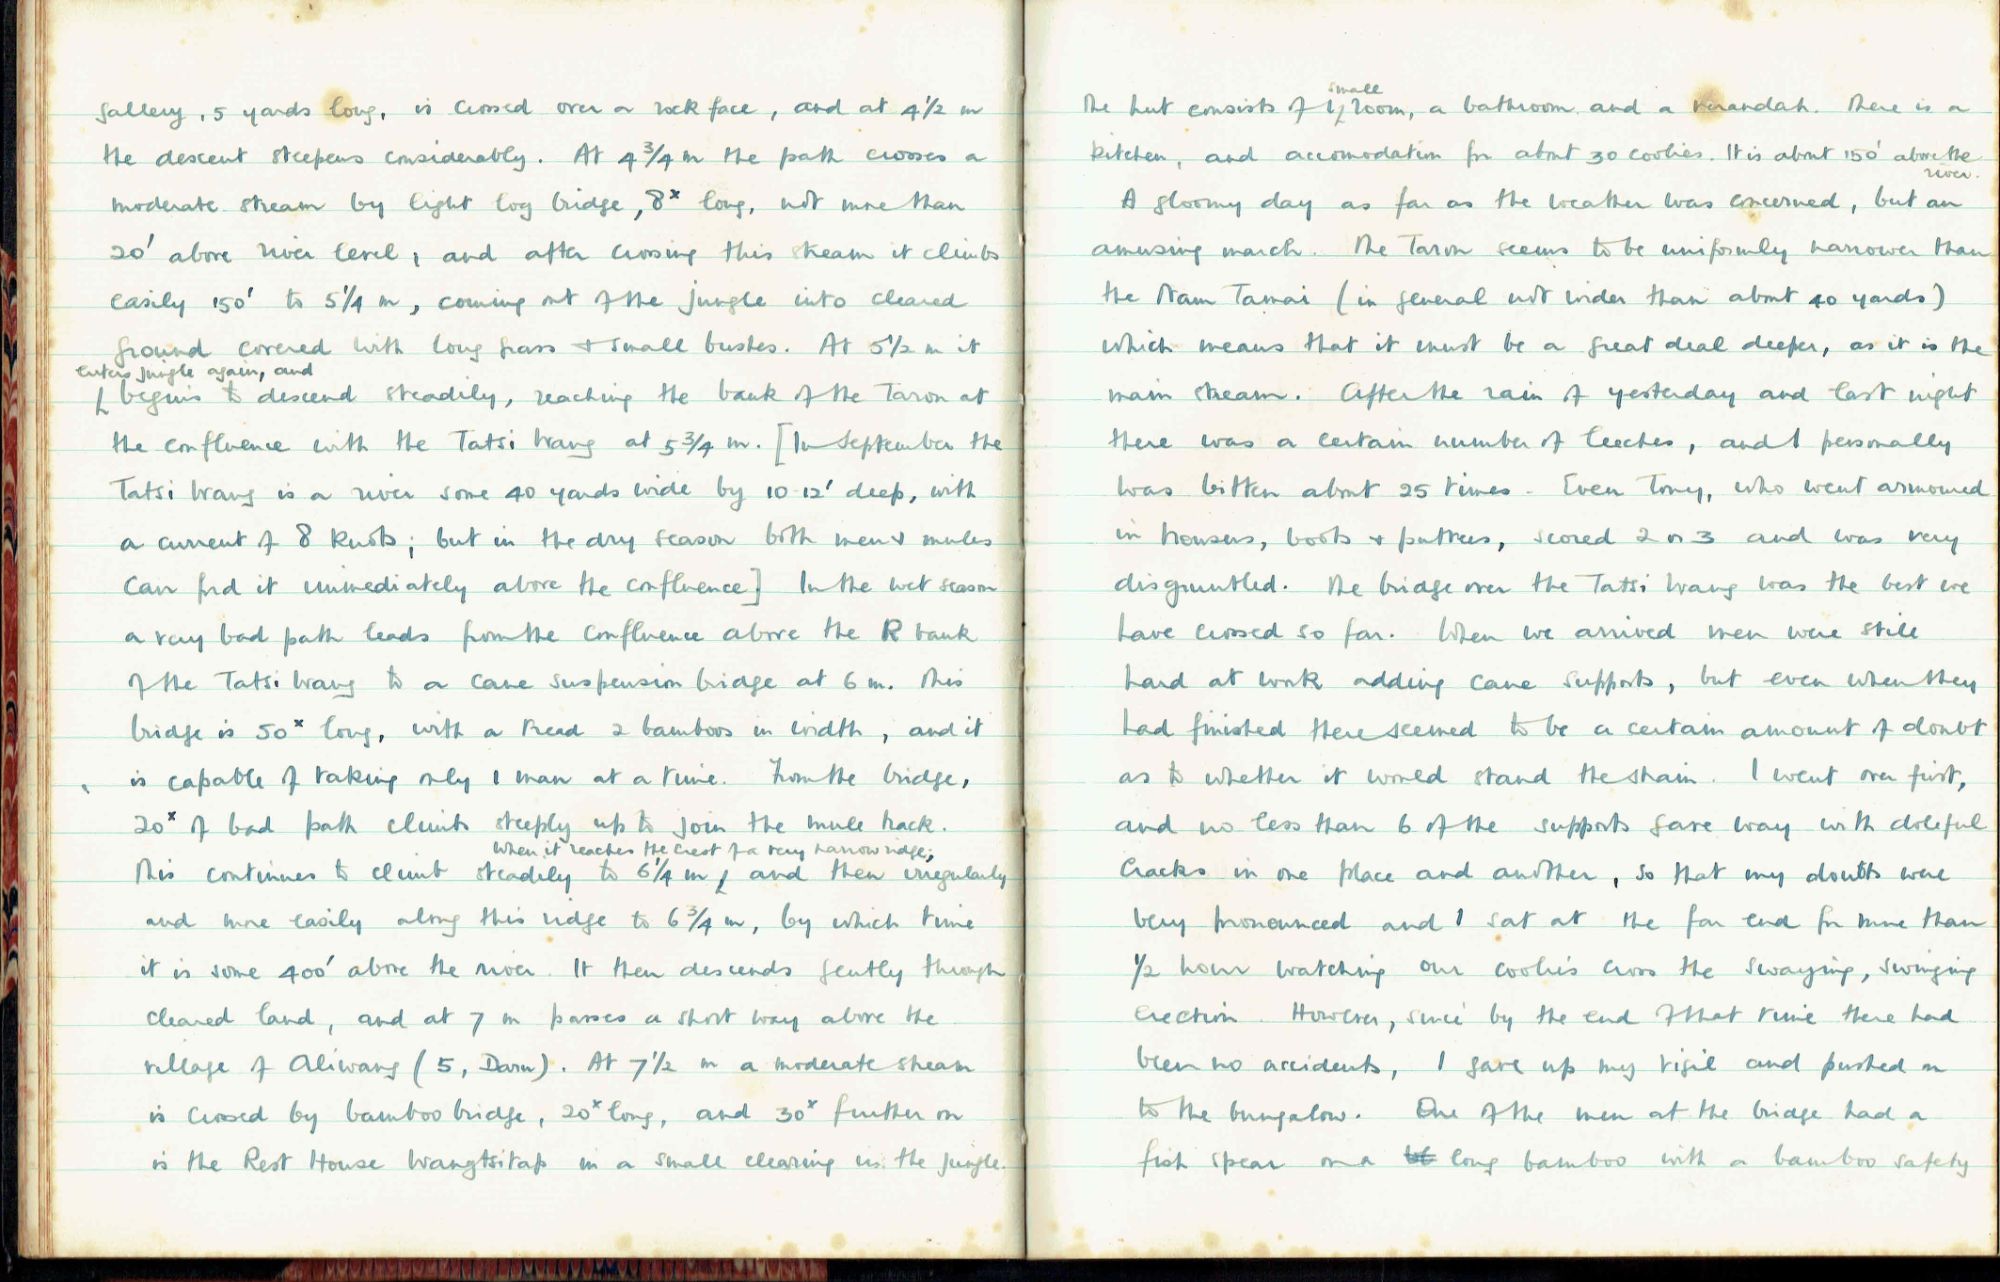 gallery, 5 yards long, is crossed over a rock face, and at 4½ m
the descent steepens considerably. At 4¾ m the path crosses a
moderate stream by light log bridge, 8ˣ long, not more than
20' above river level, and after crossing this stream it climbs
easily 150' to 5¼ m, coming out of the jungle into cleared
ground covered with long grass + small bushes. At 5½ m it
enters jungle again, and
begins to descend steadily, reaching the bank of the Taron at
the confluence with the Tatsi Wang at 5¾ m. [In September the
Tatsi Wang is a river some 40 yards wide by 10-12' deep, with
a current of 8 knots; but in the dry season both men + mules
can ford it immediately above the confluence] In the wet season
a very bad path leads from the confluence above the R bank
of the Tatsi Wang to a cane suspension bridge at 6 m. This
bridge is 50ˣ long, with a tread 2 bamboos in width, and it
is capable of taking only 1 man at a time. From the bridge,
20ˣ of bad path climbs steeply up to join the mule track.
when it reaches the crest of a very narrow ridge;
This continues to climb steadily to 6¼ m, and then irregularly
and more easily along this ridge to 6¾ m, by which time
it is some 400' above the river. It then descends gently through
cleared land, and at 7 m passes a short way above the
village of Aliwang (5, Daru). At 7½ m a moderate stream
is crossed by bamboo bridge, 20ˣ long, and 30ˣ further on
is the Rest House Wangtsitap in a small clearing in the jungle.
small
The hut consists of 1 room, a bathroom and a verandah. There is a
kitchen, and accomodation for about 30 coolies. It is about 150' above the
river.
A gloomy day as far as the weather was concerned, but an
amusing march. The Taron seems to be uniformly narrower than
the Nam Tamai (in general not wider than about 40 yards)
which means that it must be a great deal deeper, as it is the
main stream. After the rain of yesterday and last night
there was a certain number of leeches, and I personally
was bitten about 25 times. Even Tony, who went armoured
in trousers, boots + puttees, scored 2 or 3 and was very
disgruntled. The bridge over the Tatsi Wang was the best we
have crossed so far. When we arrived men were still
hard at work adding cane supports, but even when they
had finished there seemed to be a certain amount of doubt
as to whether it would stand the strain. I went over first,
and no less than 6 of the supports gave way with doleful
cracks in one place and another, so that my doubts were
very pronounced and I sat at the far end for more than
½ hour watching our coolies cross the swaying, swinging
erection. However, since by the end of that time there had
been no accidents, I gave up my vigil and pushed on
to the bungalow. One of the men at the bridge had a
fish spear on a long bamboo with a bamboo safety